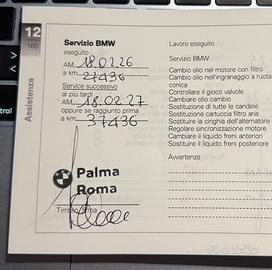 12
160
Assistenza
Servizio BMW
eseguito
AM 18.02.26
a km 27436
Service successivo
al più tardi
AM 18.02.27
oppure se raggiunto prima
a km 37436
Palma
Roma
Timbro, firma
Lavoro eseguito
Servizio BMW
Cambio olio nel motore con filtro
Cambio olio nell'ingranaggio a ruota
conica
Controllare il gioco valvole
Cambiare olio cambio
Sostituzione di tutte le candele
Sostituzione cartuccia filtro aria
Sostituire la cinghia dell'alternatore
Regolare sincronizzazione motore
Cambiare il liquido freni anteriori
Sostituire il liquido freni posteriore
Avvertenze
subito.it